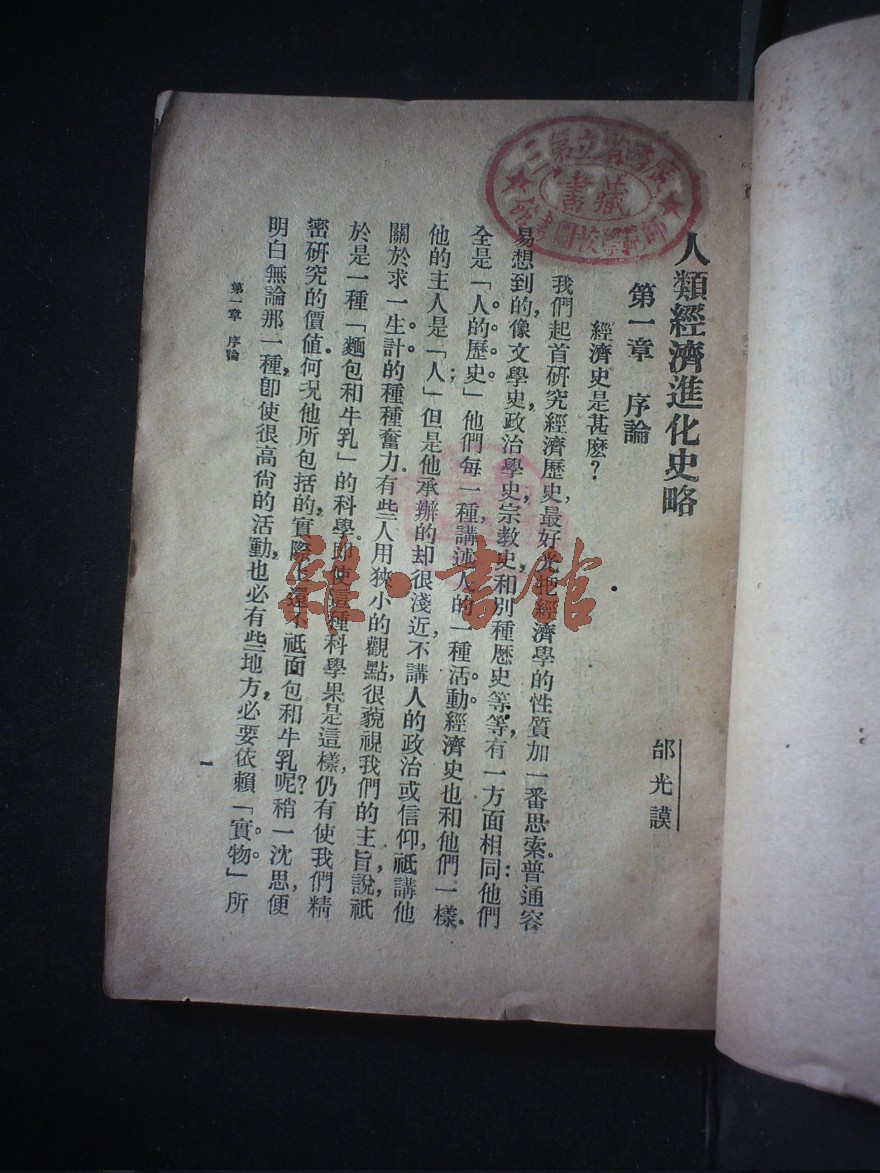 人類經濟進化史略
邰光謨
第一章　序論
經濟史是甚麼？
我們起首研究經濟歷史，最好先把經濟學的性質加一番思索。普通容
易想到的，像文學史政治學史宗教史和別種歷史等等，有一方面相同：他們
全是「人的歷史」他們每一種，講述人的一種活動。經濟史也和他們一樣，
他的主人是「人」；但是他承辦的却很淺近，不講人的政治或信仰，祇講他
關於求一生計的種種奮力。有些人用狹小的觀點，很藐視我們的主旨，說祇
於是一種「麵包和牛乳」的科學。即使這種科學果是這樣，仍有使我們精
密研究的價值，何况他所包括的，實際上還不祇面包和牛乳呢？稍一沈思，便
明白無論那一種，卽使很高尙的活動，也必有些地方，必要依賴「實物」所
第一章　序論
一
廣西省立第三
師範學校圖書館
藏書
雜·書館